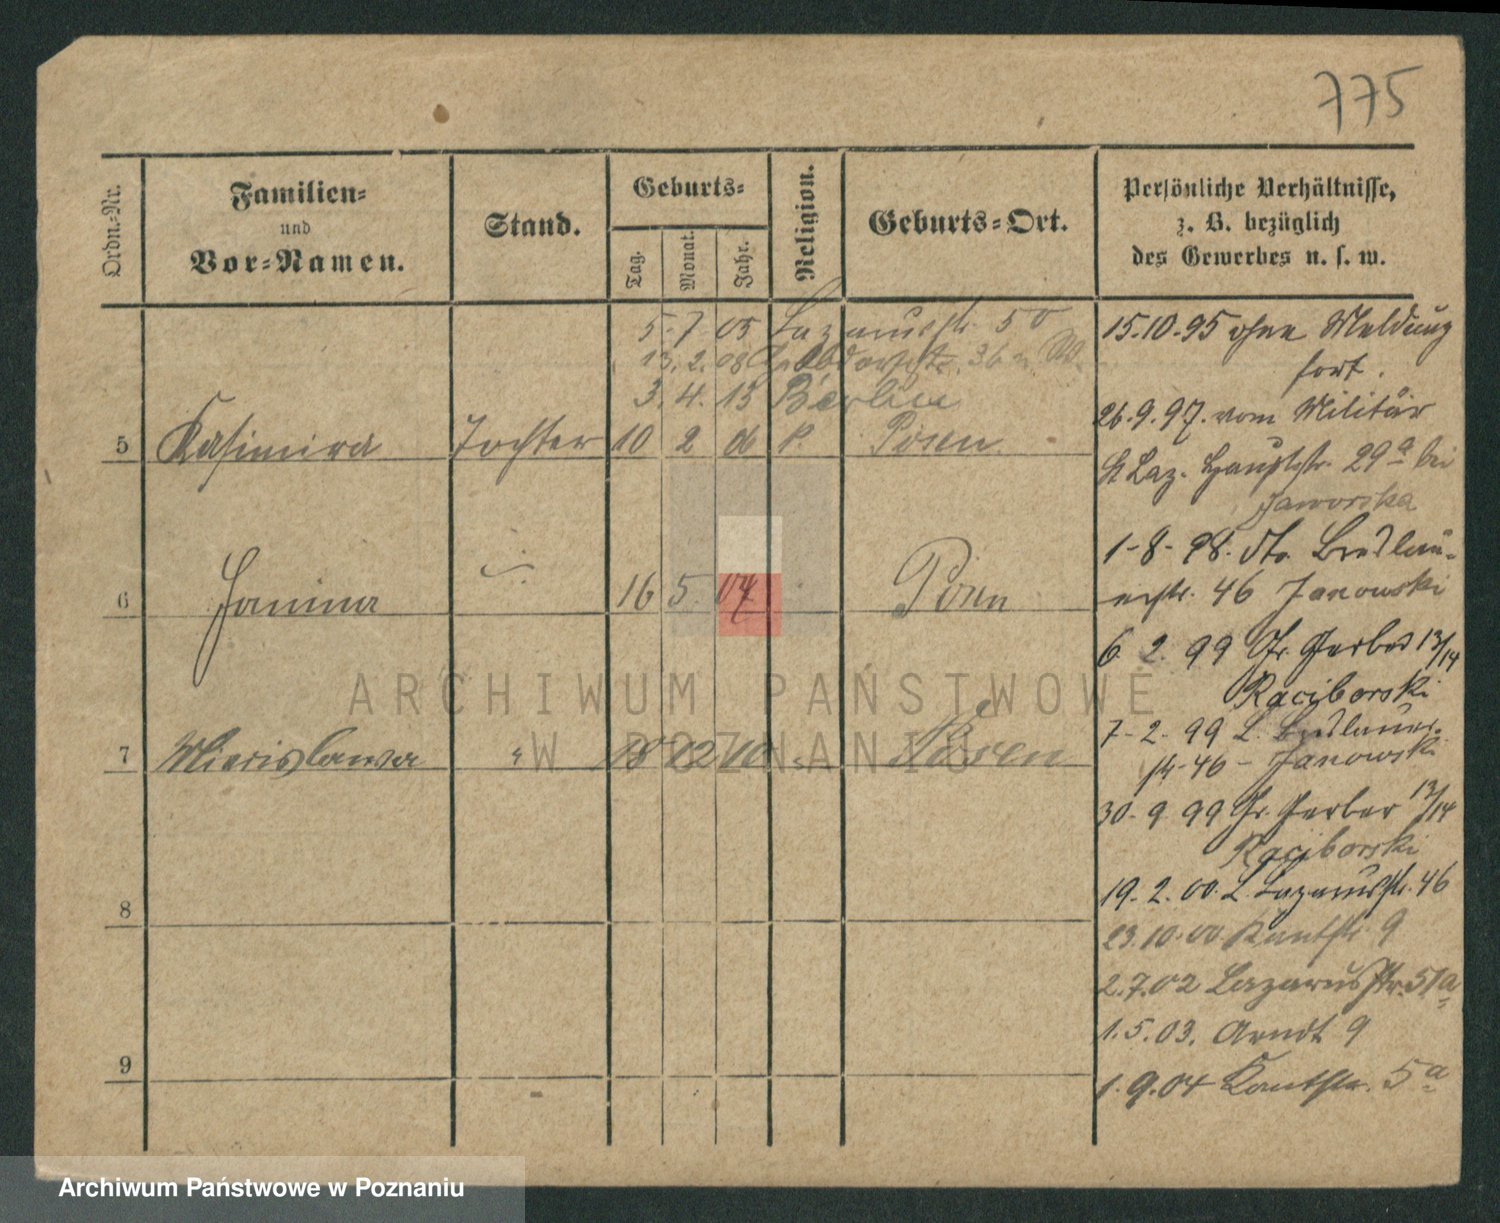 775
Ordn.-Nr.
Familien-
und
Vor-Namen.
Stand.
Geburts-
Tag.
Monat.
Jahr.
Religion.
Geburts-Ort.
Persönliche Verhältnisse,
z. B. bezüglich
des Gewerbes u. s. w.
5.7.05 Lazarusstr. 50
13.2.08
3.4.13 Berlin
5 Kasimira Tochter 10 2 06 k. Posen
6 Janina 16 5 07 Posen
7 Mierislawa " 18 12 10 Posen
8
9
15.10.95 ohne Meldung
fort.
26.9.97. vom Militär
St Laz. Hauptstr. 29a bei
Jaworska
1-8-98. Breslau-
erstr. 46 Janowski
6 2. 99 Gr. Gerber 13/14
Raciborski
7-2-99 Breslauer-
str-46 - Janowski
30-9 99 Gr. Gerber 13/14
Raciborski
19-2.00. L. Lazarusstr. 46
23.10.00 Kantstr 9
2.7.02 Lazarusstr. 51a
1.5.03. Arndt 9
1.9.04 Kantstr. 5a
ARCHIWUM PAŃSTWOWE
W POZNANIU
Archiwum Państwowe w Poznaniu